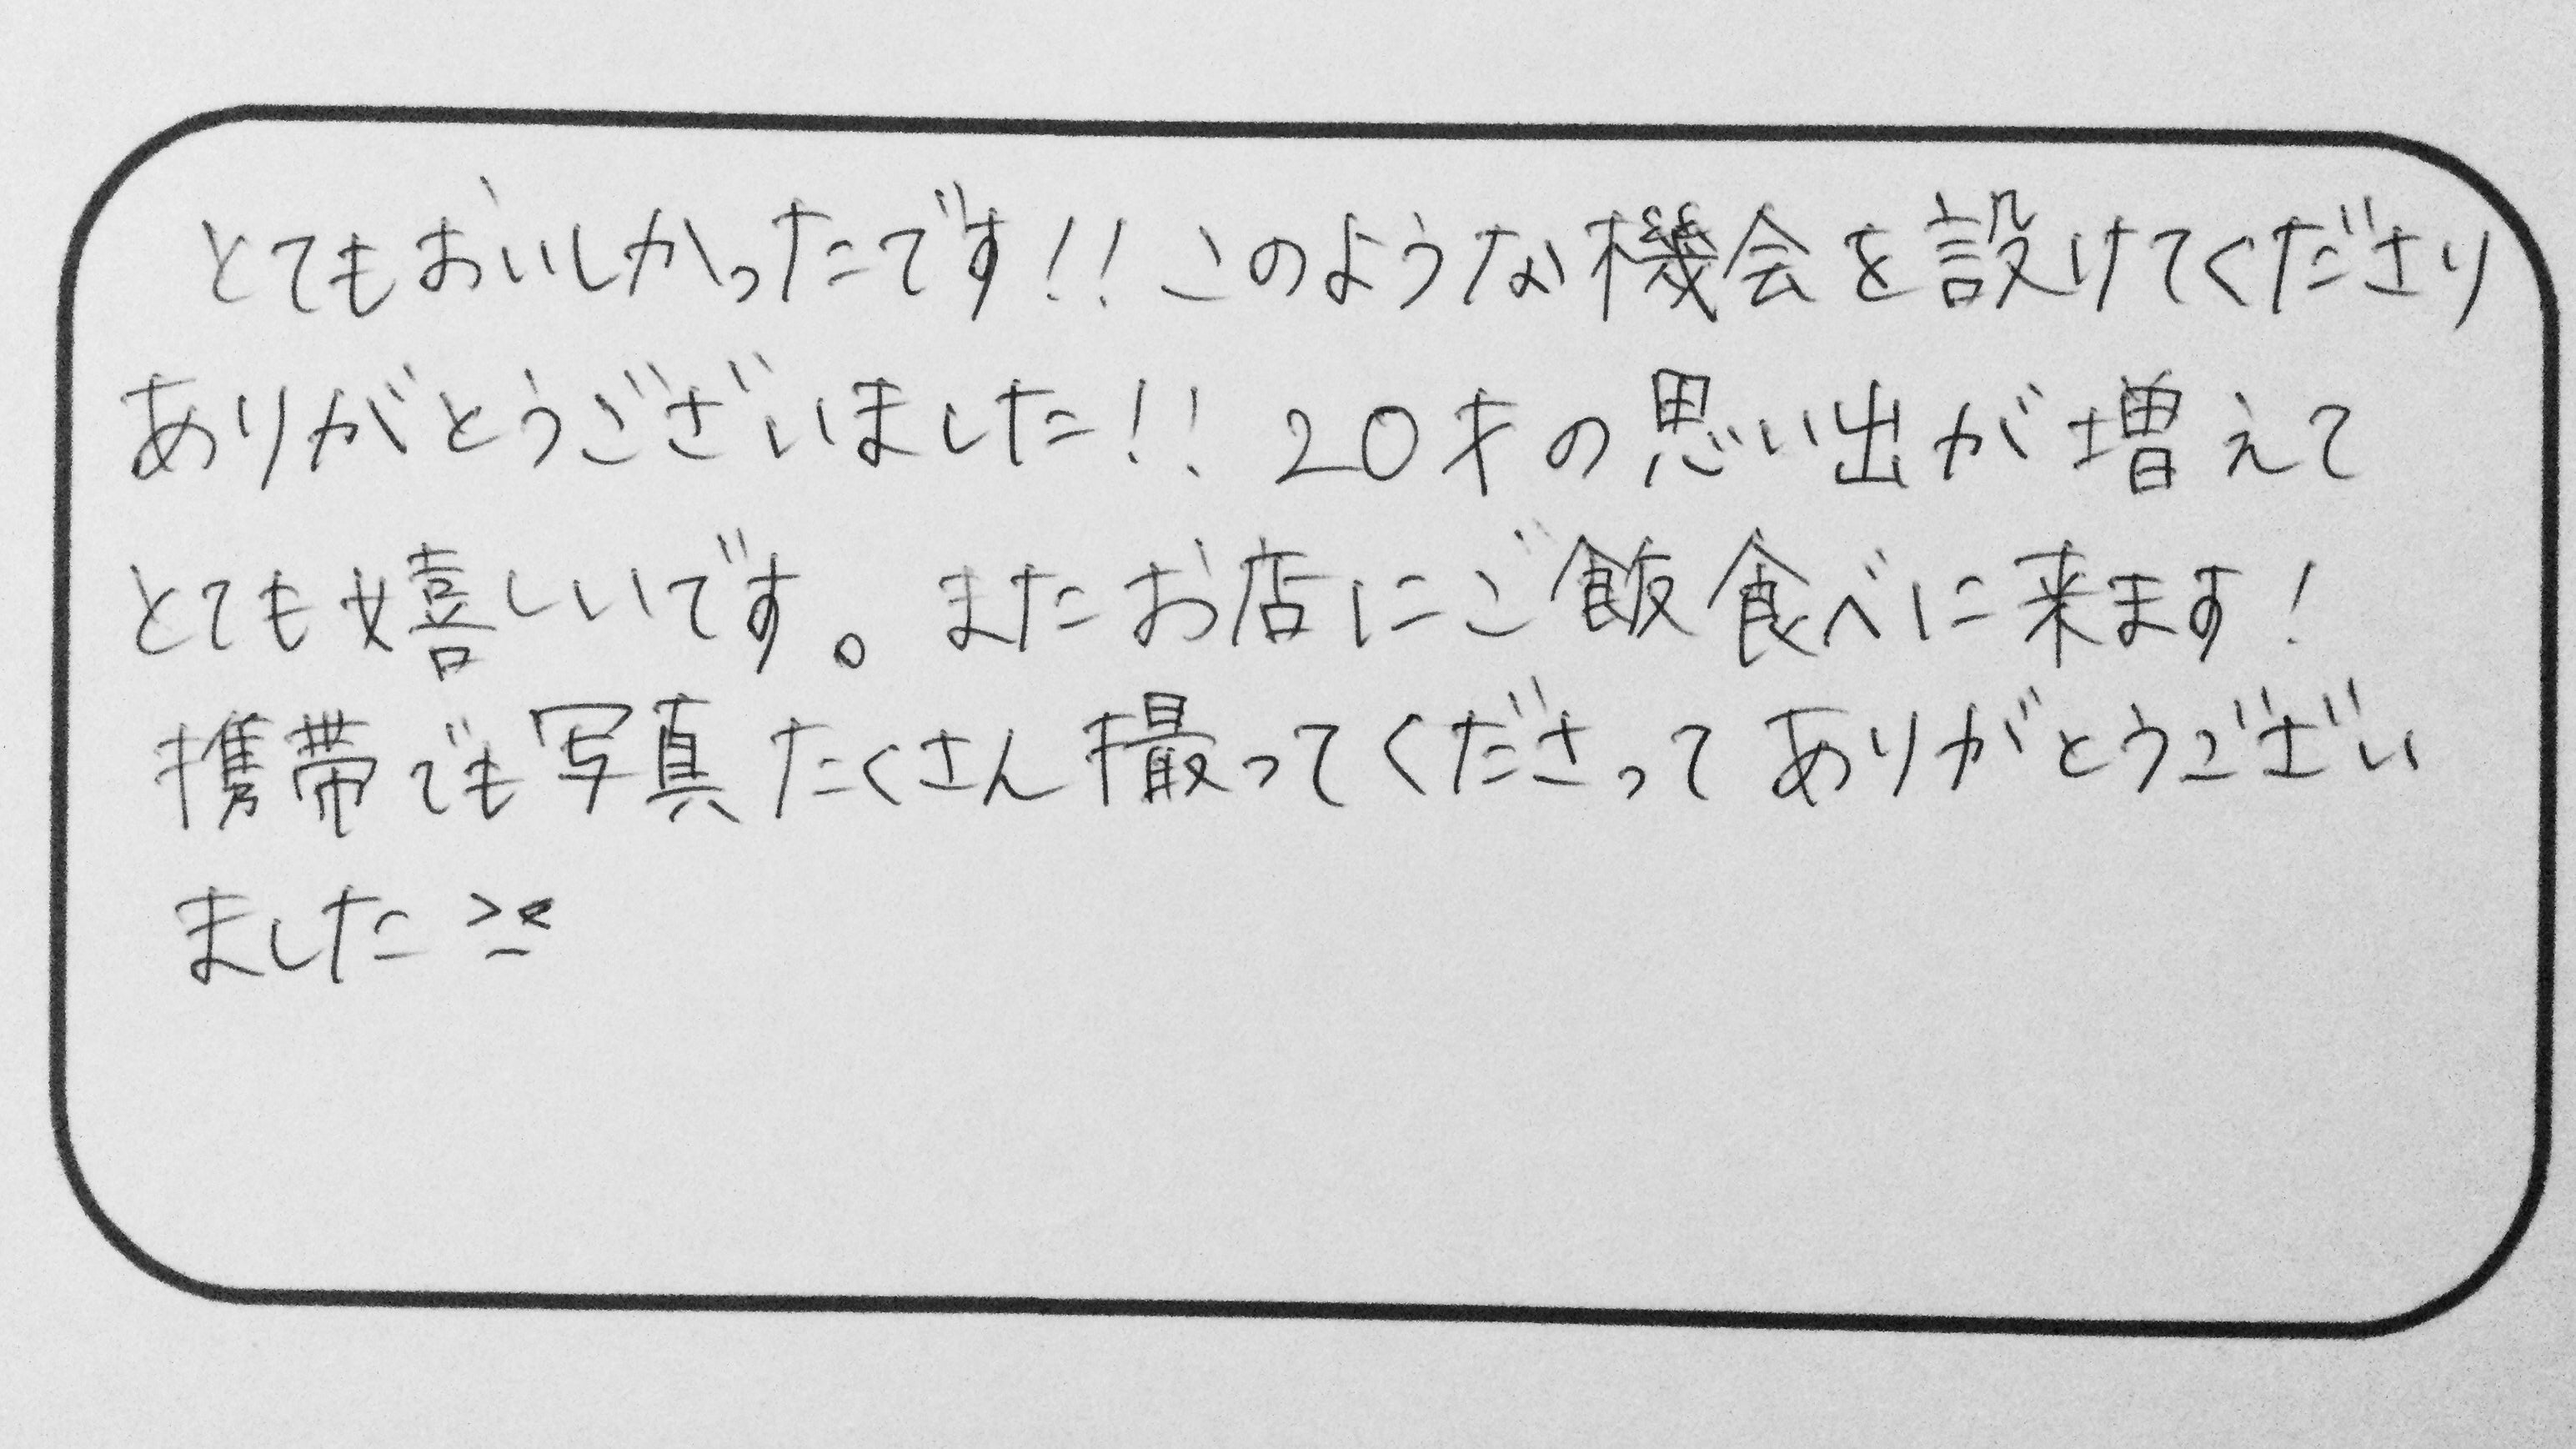 とてもおいしかったです!!このような機会を設けてくださり
ありがとうございました!!20才の思い出が増えて
とても嬉しいです。またお店にご飯食べに来ます!
携帯でも写真たくさん撮ってくださってありがとうござい
ました><